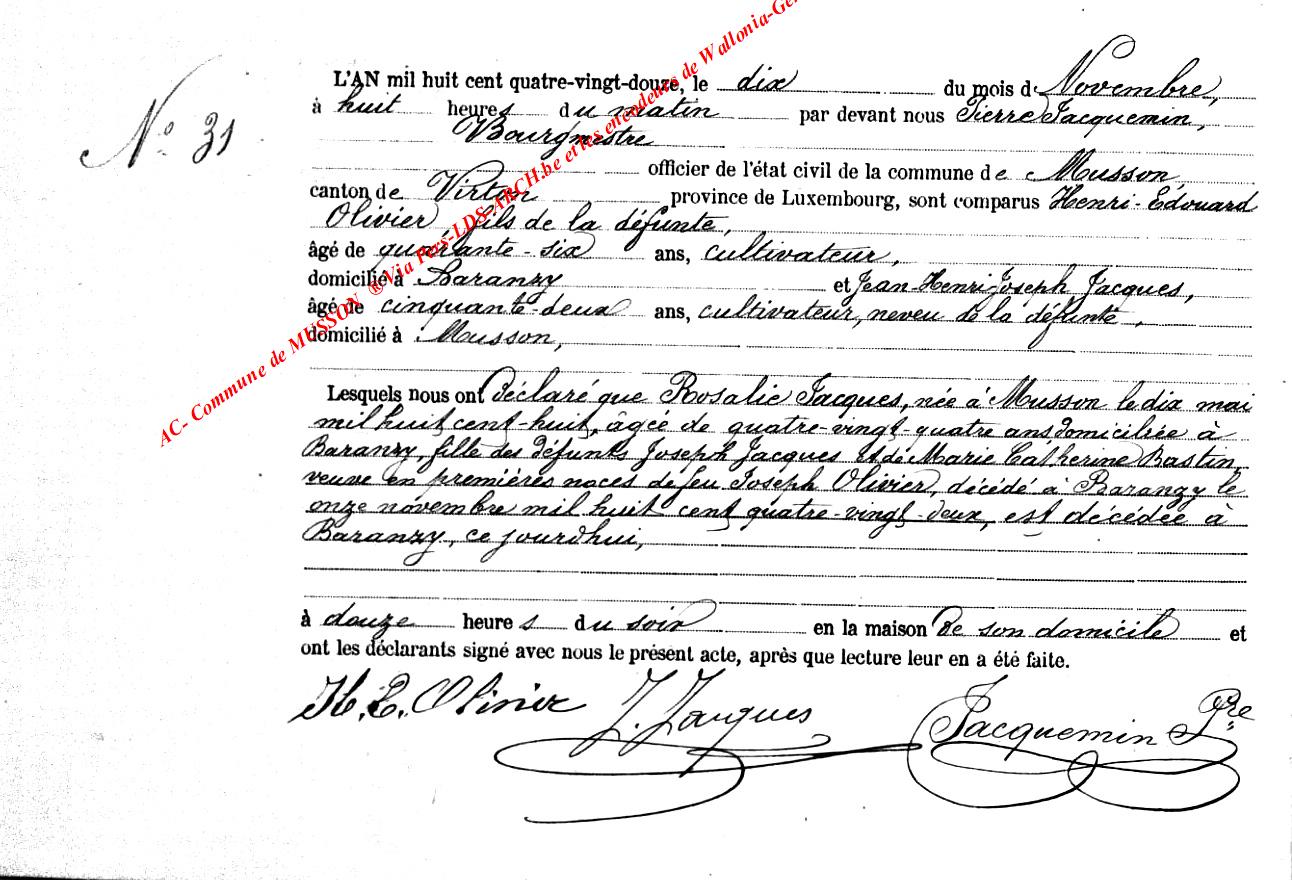 N° 31
L'AN mil huit cent quatre-vingt-douze, le dix du mois de Novembre,
à huit heures du matin par devant nous Pierre Jacquemin,
Bourgmestre
officier de l'état civil de la commune de Musson,
canton de Virton province de Luxembourg, sont comparus Henri-Edouard
Olivier, fils de la défunte,
âgé de quarante-six ans, cultivateur,
domicilié à Baranzy et Jean-Henri-Joseph Jacques,
âgé de cinquante-deux ans, cultivateur, neveu de la défunte,
domicilié à Musson,
Lesquels nous ont déclaré que Rosalie Jacques, née à Musson le dix mai
mil huit cent-huit, âgée de quatre-vingt-quatre ans, domiciliée à
Baranzy, fille des défunts Joseph Jacques et de Marie Catherine Bastin,
veuve en premières noces de feu Joseph Olivier, décédé à Baranzy le
onze novembre mil huit cent quatre-vingt-deux, est décédée à
Baranzy, ce jourdhui,
à douze heures du soir en la maison de son domicile et
ont les déclarants signé avec nous le présent acte, après que lecture leur en a été faite.
H. E. Olivier J. Jacques Jacquemin Pre
AC- Commune de MUSSON ® Via Pers-LDS-ARCH.be et les encodeurs de Wallonia-Ge